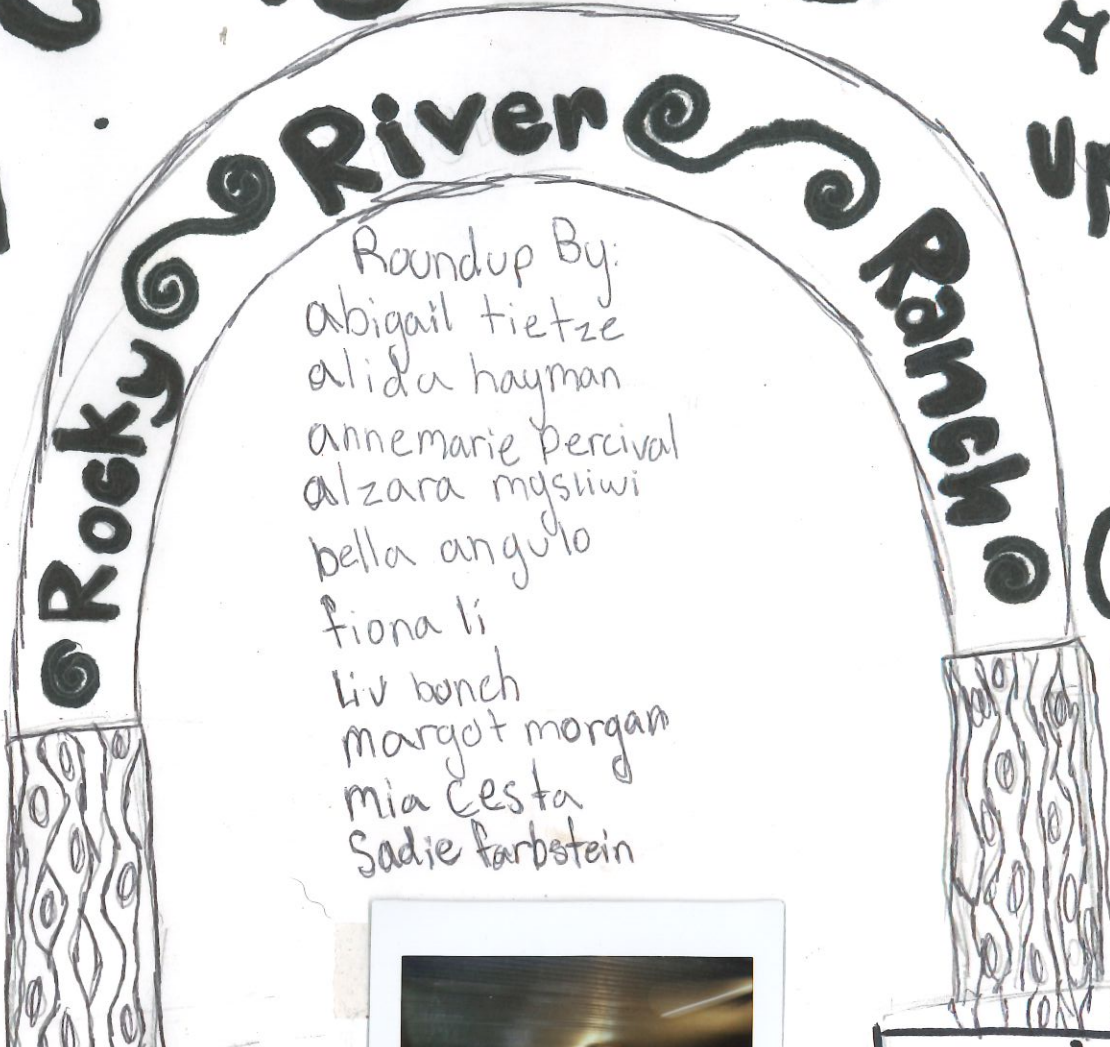 Rocky River Ranch
Up
Roundup By:
abigail tietze
alida hayman
annemarie percival
alzara mysliwi
bella angulo
fiona li
liv bonch
margot morgan
mia cesta
Sadie farbstein